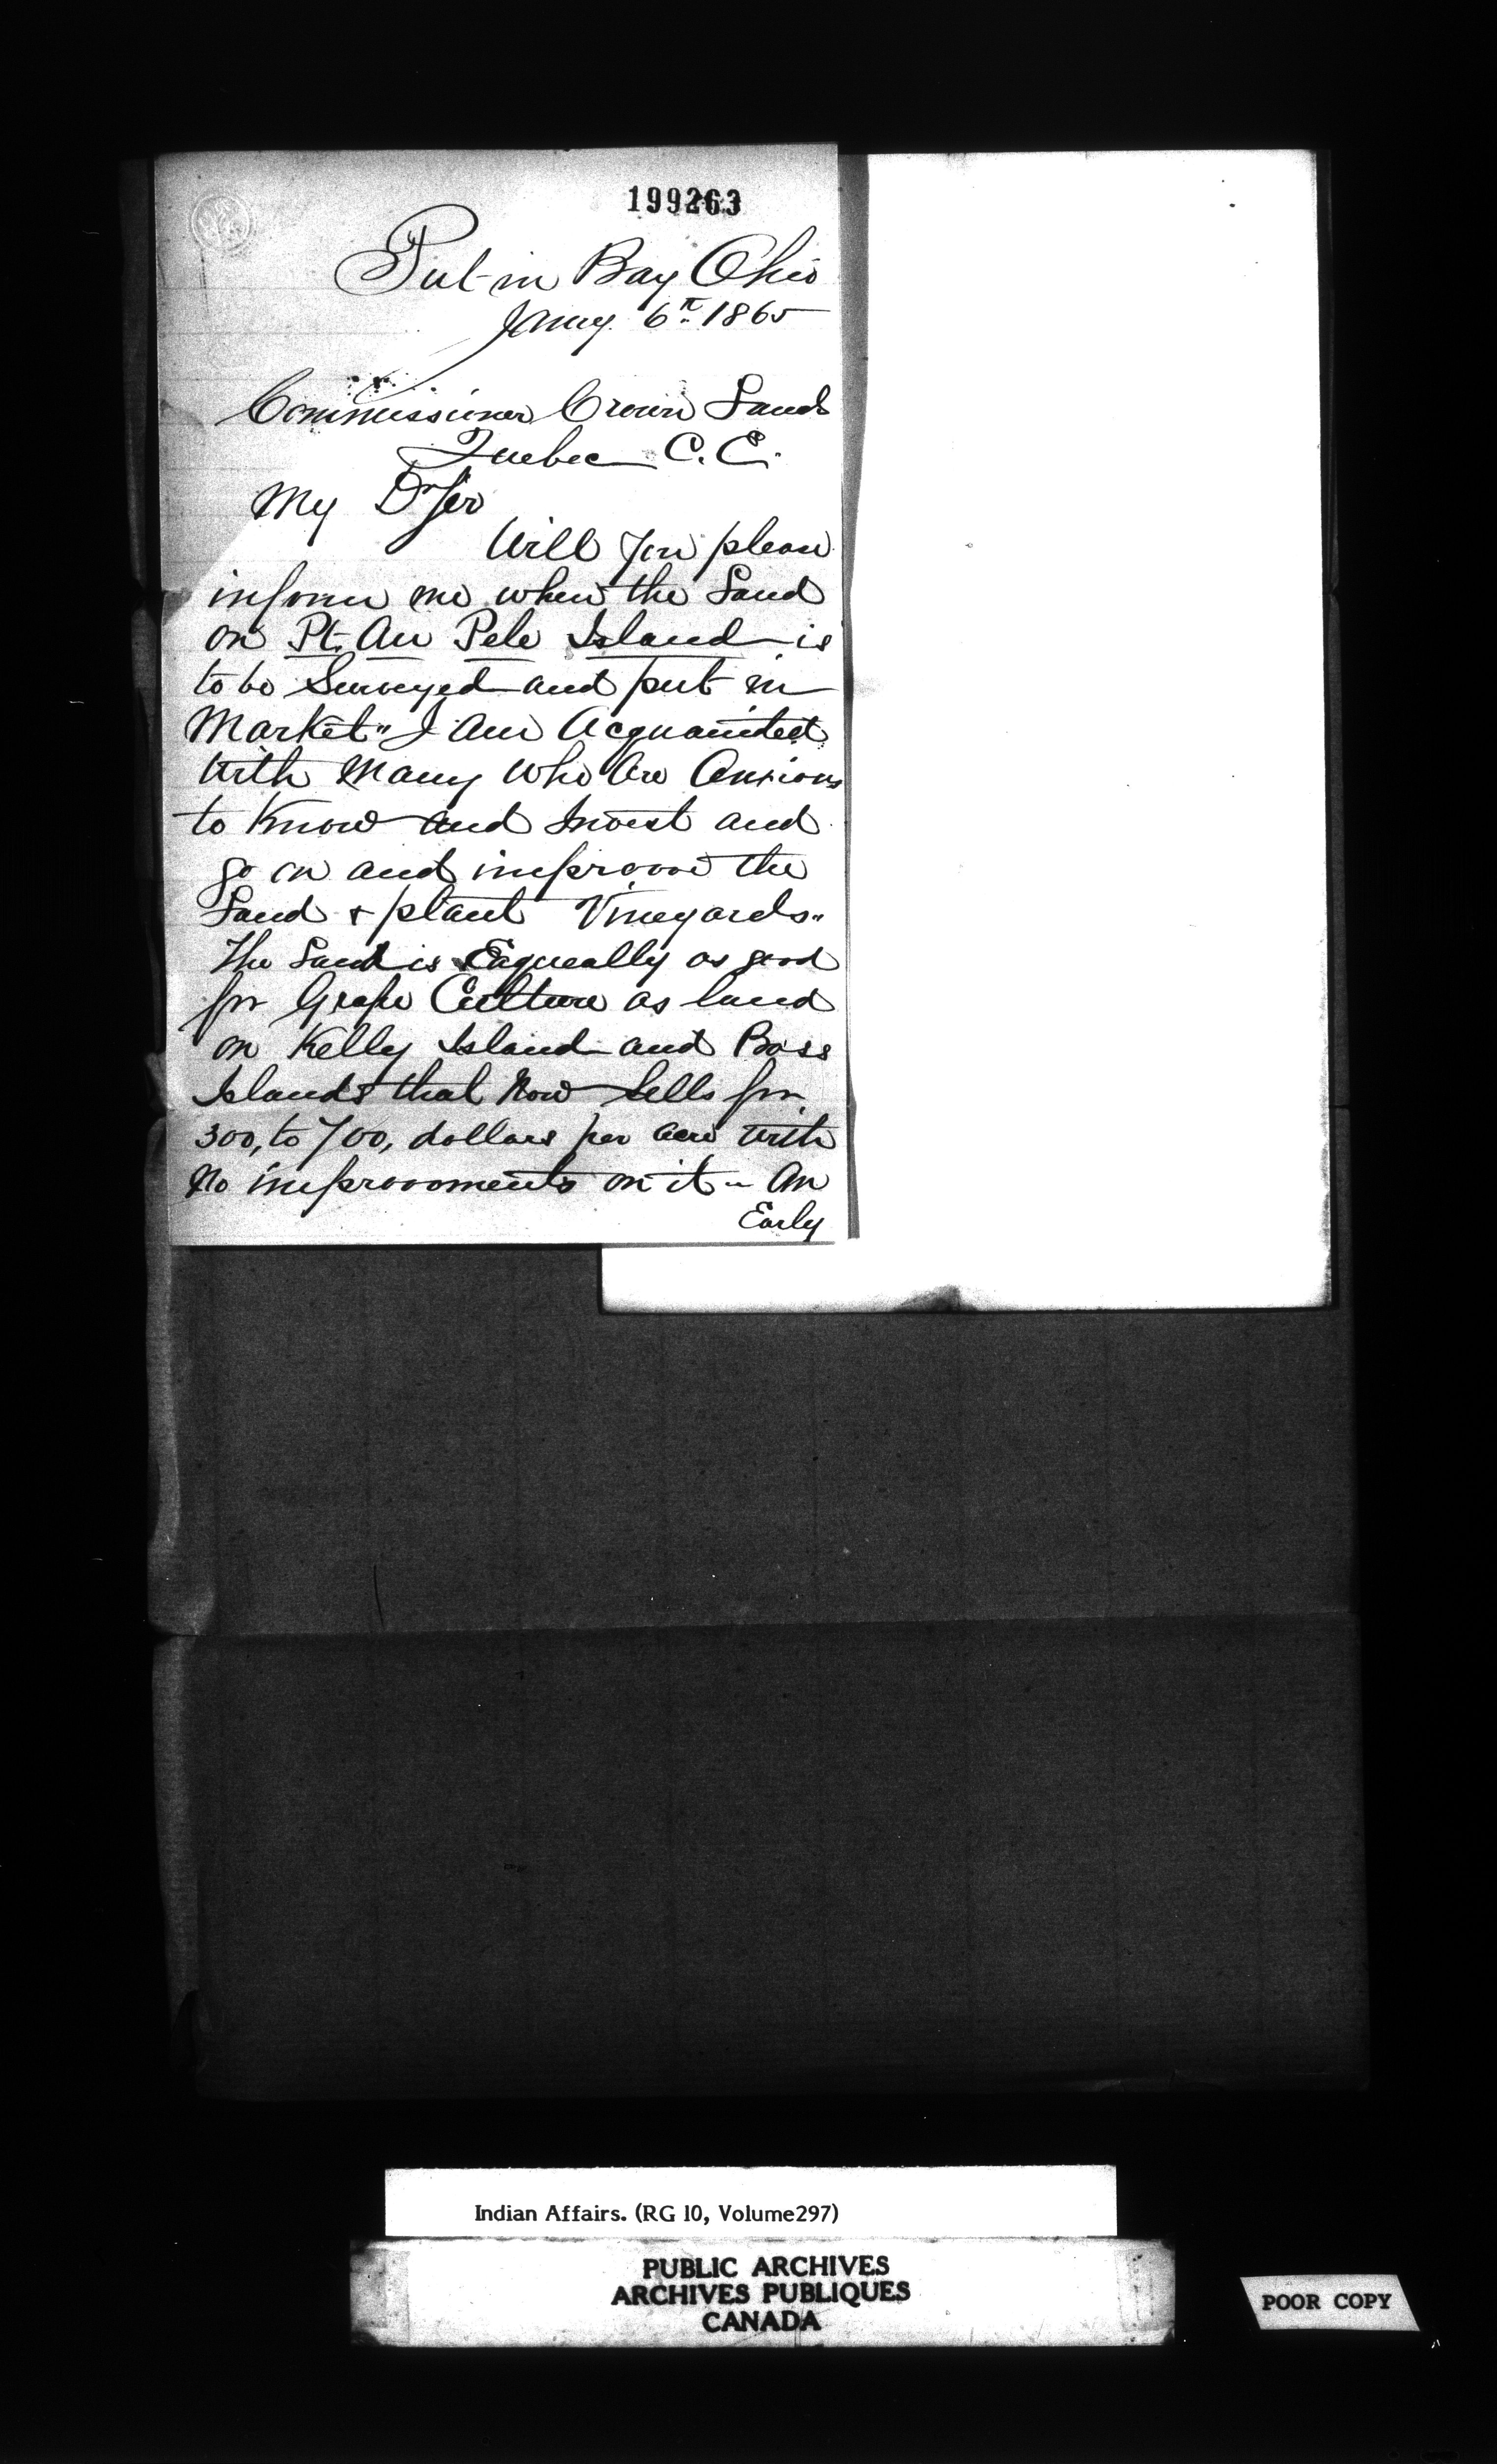 199263
Put-in Bay Ohio
Jany. 6th 1865
Commissioner Crown Lands
Quebec C. E.
My Dr Sir
Will you please
inform me when the Land
on Pt. Au Pele Island is
to be Surveyed and put in
Market" I am Acquainted
With Many Who Are Anxious
to Know and Invest and
go on and improove the
Land & plant Vineyards"
The Land is Eaqueally as good
for Grape Culture as land
on Kelly Island and Bass
Islands that Now Sells for
300, to 700, dollars per acre with
No improovoments on it " An
Early
Indian Affairs. (RG 10, Volume297)
PUBLIC ARCHIVES
ARCHIVES PUBLIQUES
CANADA
POOR COPY